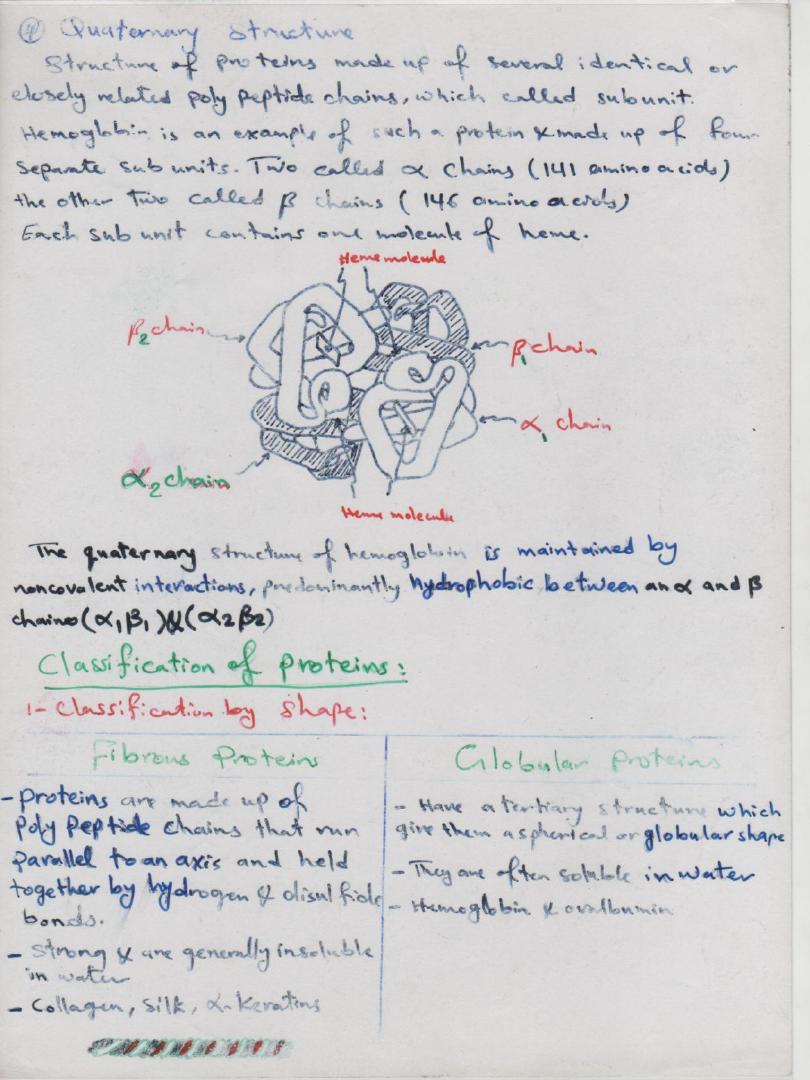 ④ Quaternary Structure
Structure of proteins made up of several identical or
closely related poly peptide chains, which called subunit.
Hemoglobin is an example of such a protein & made up of four
separate sub units. Two called α chains (141 amino acids)
the other two called β chains (146 amino acids)
Each sub unit contains one molecule of heme.
Heme molecule
β2 chain
β1 chain
α1 chain
α2 chain
Heme molecule
The quaternary structure of hemoglobin is maintained by
noncovalent interactions, predominantly hydrophobic between an α and β
chains (α1β1) & (α2β2)
Classification of proteins:
1- Classification by shape:
Fibrous Proteins
- Proteins are made up of
poly peptide chains that run
parallel to an axis and held
together by hydrogen & disulfide
bonds.
- Strong & are generally insoluble
in water
- Collagen, Silk, α-Keratins
Globular proteins
- Have a tertiary structure which
give them a spherical or globular shape
- They are often soluble in water
- Hemoglobin & ovalbumin